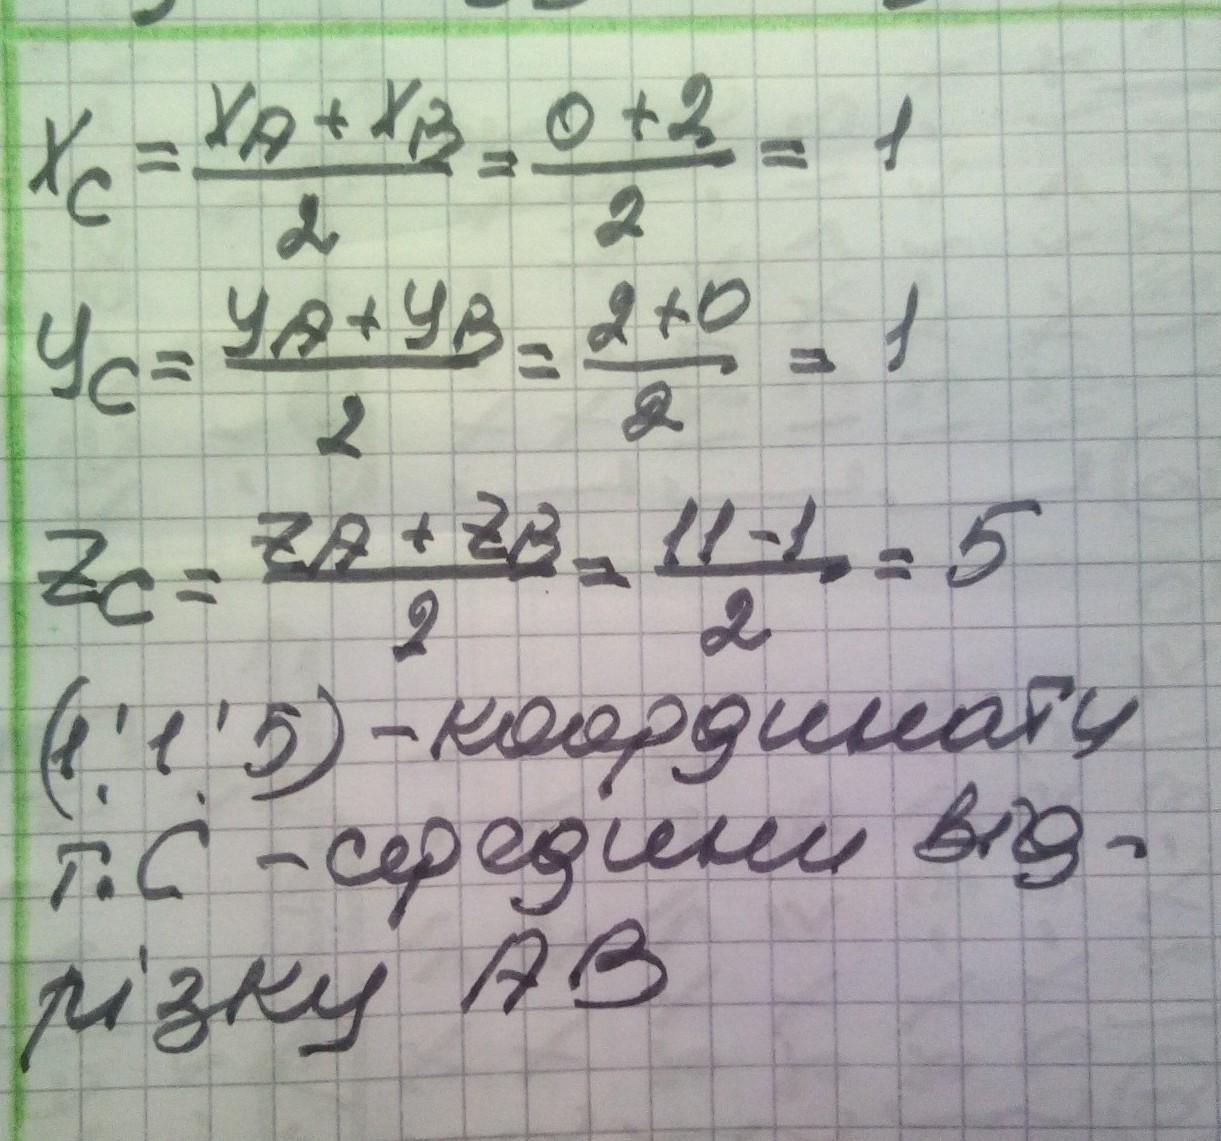 Xc = (XA + XB)/2 = (0 + 2)/2 = 1
Yc = (YA + YB)/2 = (2 + 0)/2 = 1
Zc = (ZA + ZB)/2 = (11 - 1)/2 = 5
(1; 1; 5) - координати
т. С - середини від-
різку АВ